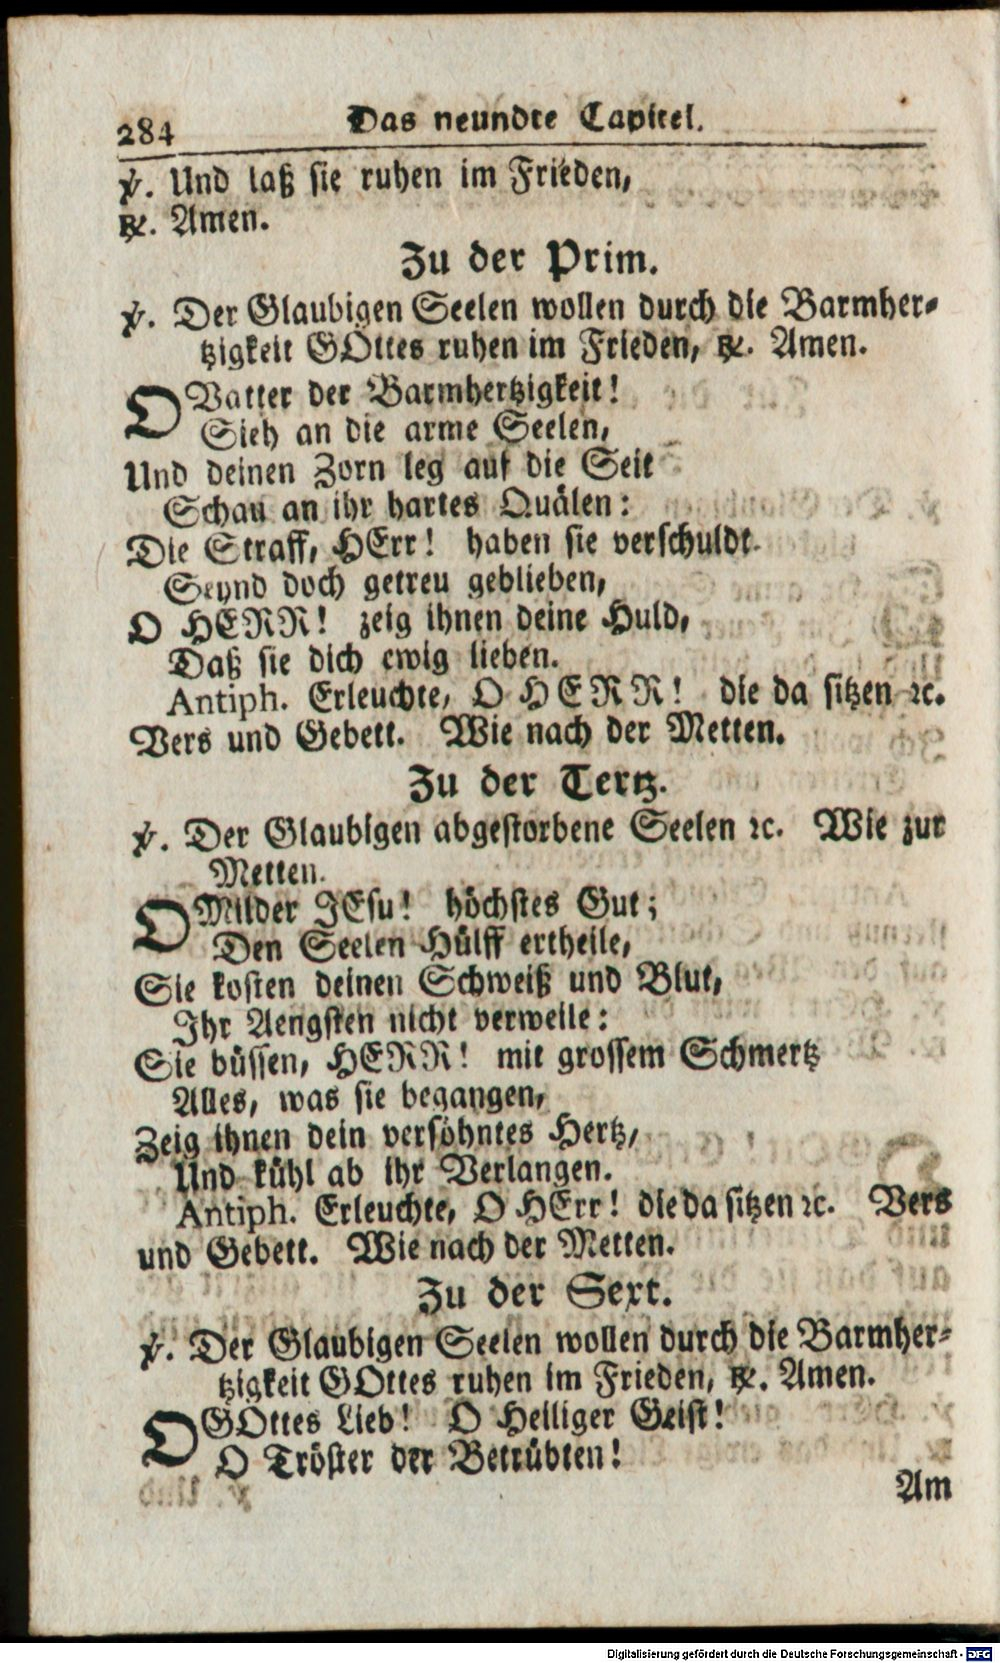 284 Das neundte Capitel.
℣. Und laß sie ruhen im Frieden,
℟. Amen.
Zu der Prim.
℣. Der Glaubigen Seelen wollen durch die Barmher-
tzigkeit GOttes ruhen im Frieden, ℟. Amen.
O Vatter der Barmhertzigkeit!
Sieh an die arme Seelen,
Und deinen Zorn leg auf die Seit
Schau an ihr hartes Quälen:
Die Straff, HErr! haben sie verschuldt
Seynd doch getreu geblieben,
O HERR! zeig ihnen deine Huld,
Daß sie dich ewig lieben.
Antiph. Erleuchte, O HERR! die da sitzen ꝛc.
Vers und Gebett. Wie nach der Metten.
Zu der Tertz.
℣. Der Glaubigen abgestorbene Seelen ꝛc. Wie zur
Metten.
O Milder JEsu! höchstes Gut;
Den Seelen Hülff ertheile,
Sie kosten deinen Schweiß und Blut,
Ihr Aengsten nicht verweile:
Sie büssen, HERR! mit grossem Schmertz
Alles, was sie begangen,
Zeig ihnen dein versöhntes Hertz,
Und kühl ab ihr Verlangen.
Antiph. Erleuchte, O HErr! die da sitzen ꝛc. Vers
und Gebett. Wie nach der Metten.
Zu der Sext.
℣. Der Glaubigen Seelen wollen durch die Barmher-
tzigkeit GOttes ruhen im Frieden, ℟. Amen.
O GOttes Lieb! O Heiliger Geist!
O Tröster der Betrübten!
Am
Digitalisierung gefördert durch die Deutsche Forschungsgemeinschaft - DFG